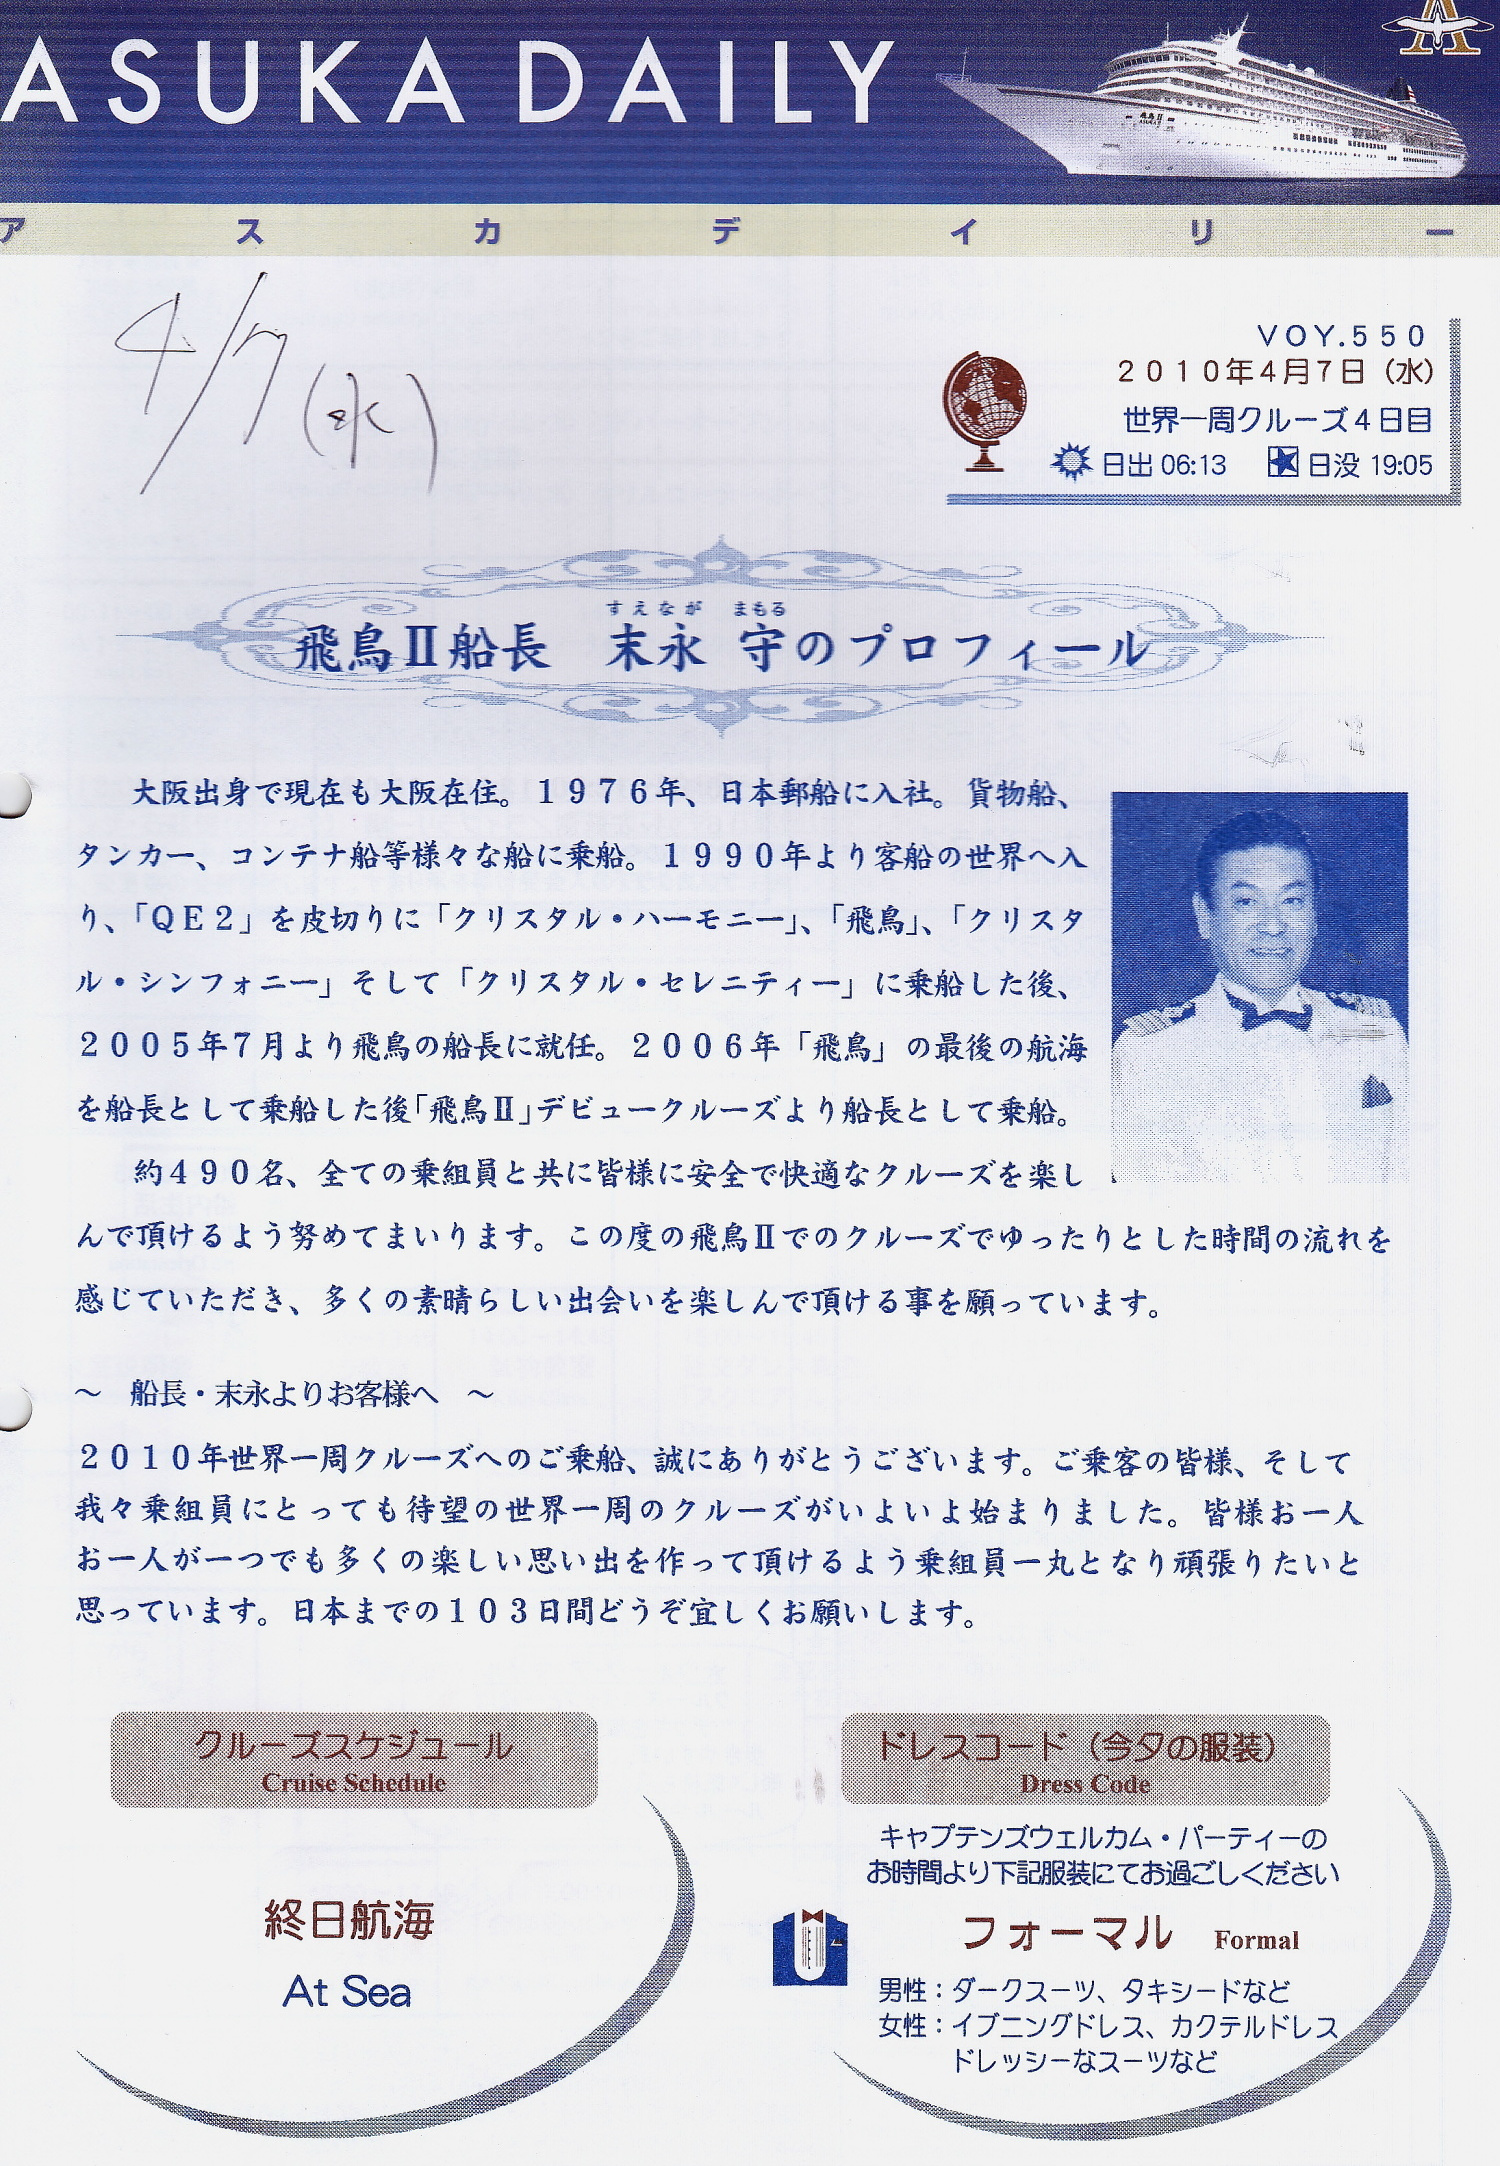 ASUKA DAILY
飛鳥Ⅱ
ASUKA Ⅱ
アスカデイリー
4/7(水)
VOY.550
2010年4月7日(水)
世界一周クルーズ4日目
日出 06:13 日没 19:05
すえなが まもる
飛鳥Ⅱ船長 末永 守のプロフィール
大阪出身で現在も大阪在住。1976年、日本郵船に入社。貨物船、
タンカー、コンテナ船等様々な船に乗船。1990年より客船の世界へ入
り、「QE2」を皮切りに「クリスタル・ハーモニー」、「飛鳥」、「クリスタ
ル・シンフォニー」そして「クリスタル・セレニティー」に乗船した後、
2005年7月より飛鳥の船長に就任。2006年「飛鳥」の最後の航海
を船長として乗船した後「飛鳥Ⅱ」デビュークルーズより船長として乗船。
約490名、全ての乗組員と共に皆様に安全で快適なクルーズを楽し
んで頂けるよう努めてまいります。この度の飛鳥Ⅱでのクルーズでゆったりとした時間の流れを
感じていただき、多くの素晴らしい出会いを楽しんで頂ける事を願っています。
～ 船長・末永よりお客様へ ～
2010年世界一周クルーズへのご乗船、誠にありがとうございます。ご乗客の皆様、そして
我々乗組員にとっても待望の世界一周のクルーズがいよいよ始まりました。皆様お一人
お一人が一つでも多くの楽しい思い出を作って頂けるよう乗組員一丸となり頑張りたいと
思っています。日本までの103日間どうぞ宜しくお願いします。
クルーズスケジュール
Cruise Schedule
終日航海
At Sea
ドレスコード（今夕の服装）
Dress Code
キャプテンズウェルカム・パーティーの
お時間より下記服装にてお過ごしください
フォーマル Formal
男性：ダークスーツ、タキシードなど
女性：イブニングドレス、カクテルドレス
ドレッシーなスーツなど